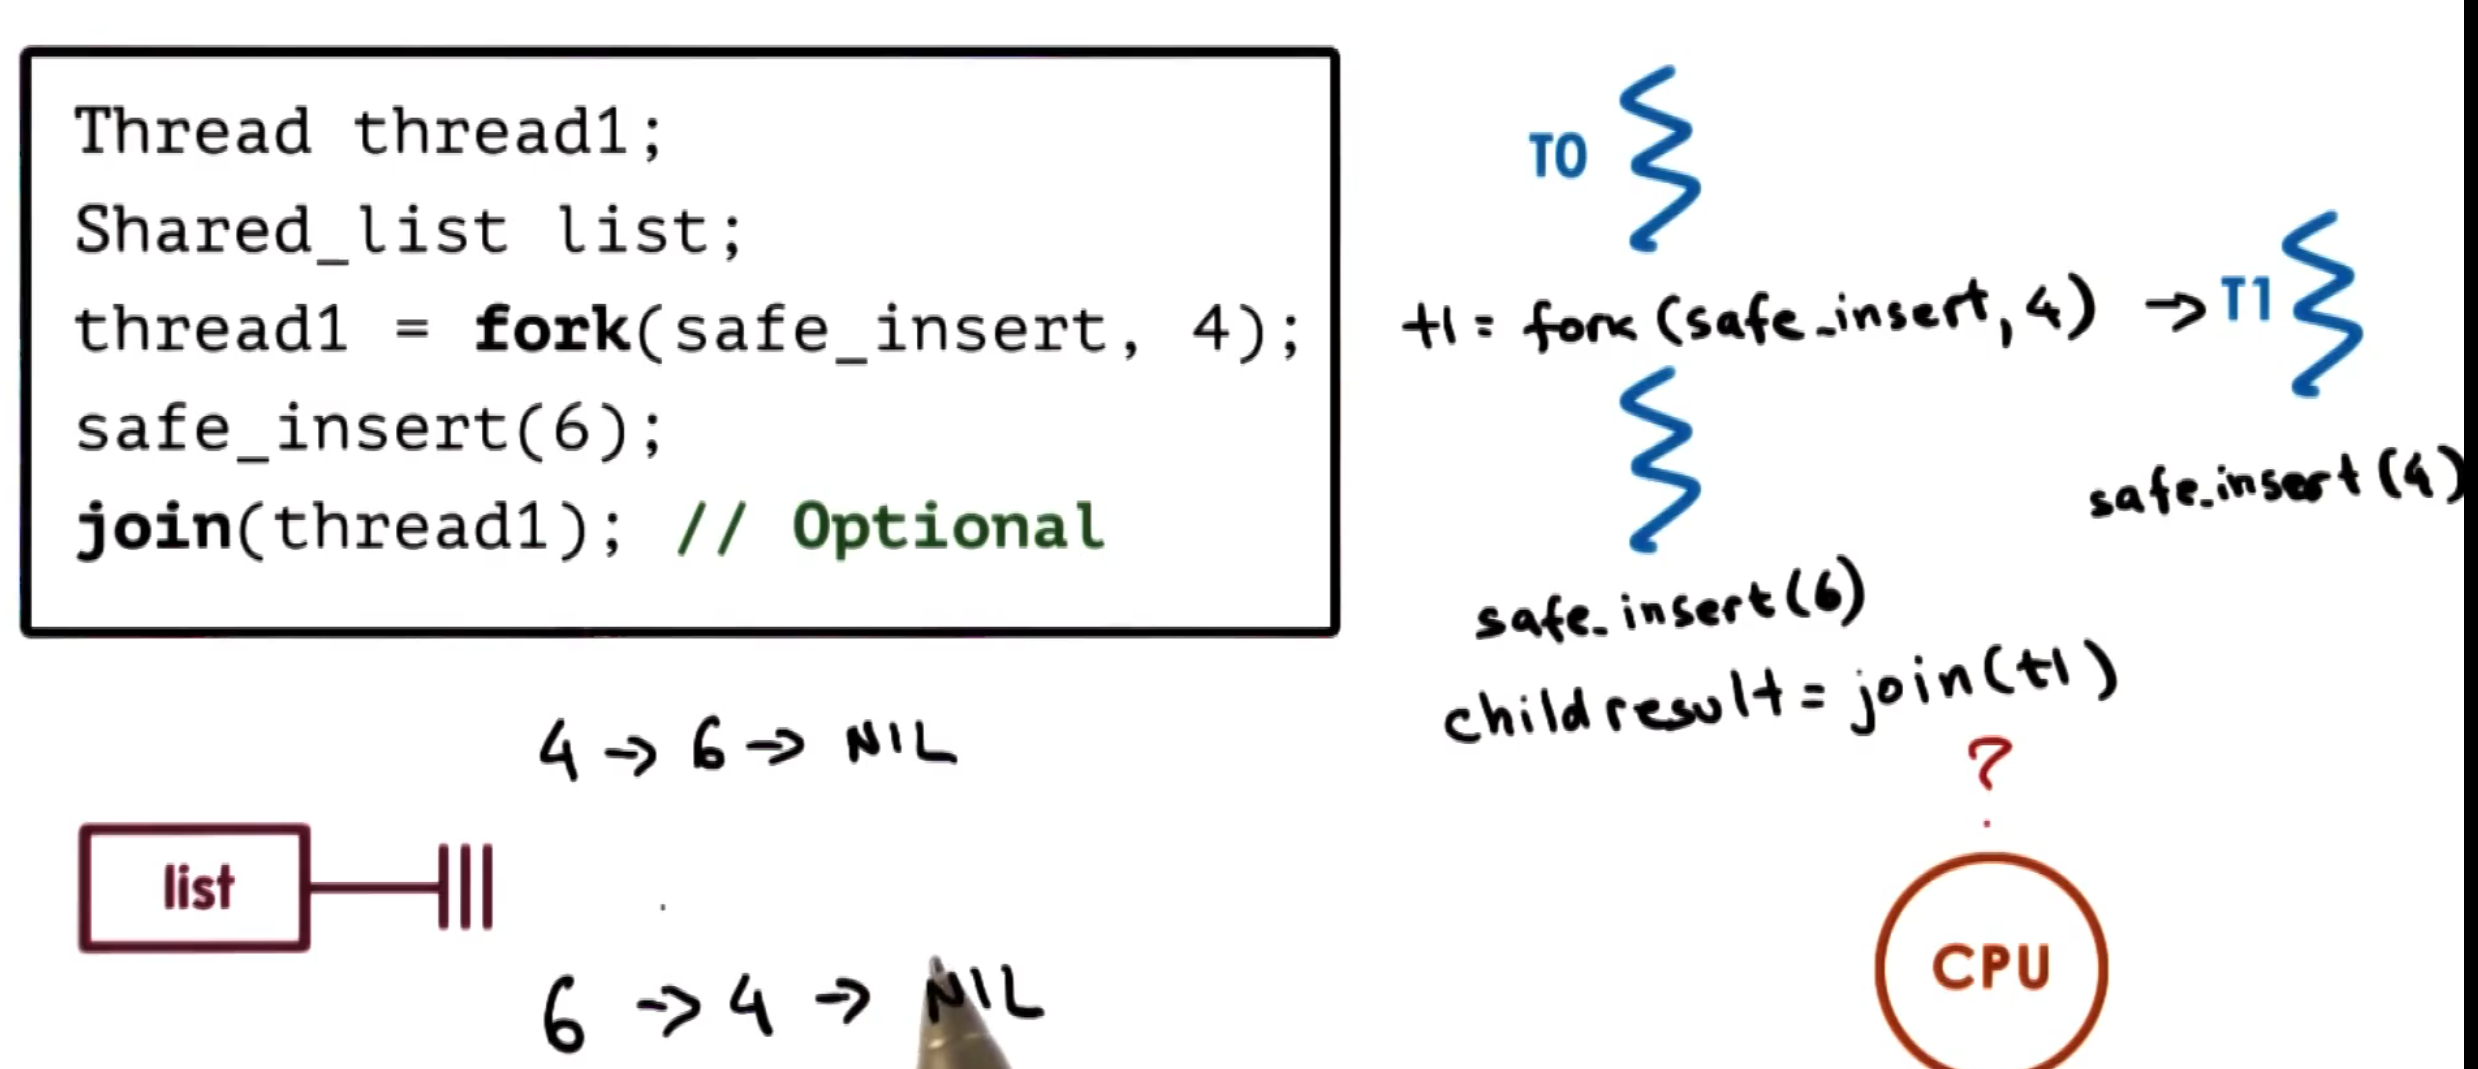 Thread thread1;
Shared_list list;
thread1 = fork(safe_insert, 4);
safe_insert(6);
join(thread1); // Optional
T0
t1 = fork (safe_insert, 4) → T1
safe_insert(4)
safe_insert(6)
child result = join(t1)
?
4 → 6 → NIL
list
6 → 4 → NIL
CPU